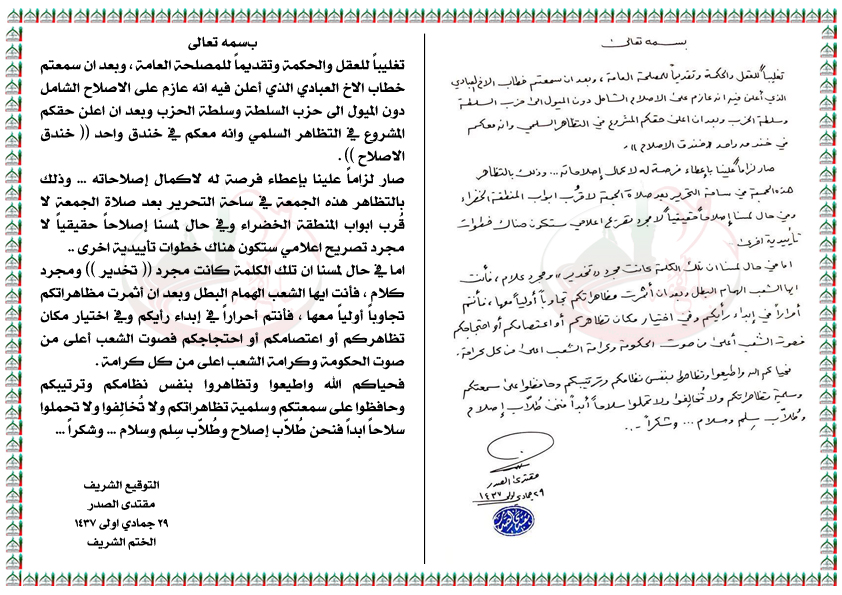 بسمه تعالى
تغليباً للعقل والحكمة وتقديماً للمصلحة العامة ، وبعد ان سمعتم خطاب الاخ العبادي
الذي أعلن فيه انه عازم على الاصلاح الشامل دون الميول الى حزب السلطة
وسلطة الحزب وبعد ان اعلن حقكم المشروع في التظاهر السلمي وانه معكم
في خندق واحد (( خندق الاصلاح )) .
صار لزاماً علينا بإعطاء فرصة له لاكمال إصلاحاته ... وذلك بالتظاهر
هذه الجمعة في ساحة التحرير بعد صلاة الجمعة لا قُرب ابواب المنطقة الخضراء
وفي حال لمسنا إصلاحاً حقيقياً لا مجرد تصريح اعلامي ستكون هناك خطوات
تأييدية اخرى ..
اما في حال لمسنا ان تلك الكلمة كانت مجرد (( تخدير )) ومجرد كلام ، فأنت
ايها الشعب الهمام البطل وبعد ان أثمرت مظاهراتكم تجاوباً أولياً معها ، فأنتم
أحراراً في إبداء رأيكم وفي اختيار مكان تظاهركم أو اعتصامكم أو احتجاجكم
فصوت الشعب أعلى من صوت الحكومة وكرامة الشعب اعلى من كل كرامة .
فحياكم الله واطيعوا وتظاهروا بنفس نظامكم وترتيبكم وحافظوا على سمعتكم
وسلمية تظاهراتكم ولا تُخالِفوا ولا تحملوا سلاحاً أبداً فنحن طُلّاب إصلاح
وطُلّاب سِلم وسلام ... وشكراً ...
مقتدى الصدر
٢٩ جمادي اولى ١٤٣٧
بسمه تعالى
تغليباً للعقل والحكمة وتقديماً للمصلحة العامة ، وبعد ان سمعتم
خطاب الاخ العبادي الذي أعلن فيه انه عازم على الاصلاح الشامل
دون الميول الى حزب السلطة وسلطة الحزب وبعد ان اعلن حقكم
المشروع في التظاهر السلمي وانه معكم في خندق واحد (( خندق
الاصلاح )) .
صار لزاماً علينا بإعطاء فرصة له لاكمال إصلاحاته ... وذلك
بالتظاهر هذه الجمعة في ساحة التحرير بعد صلاة الجمعة لا
قُرب ابواب المنطقة الخضراء وفي حال لمسنا إصلاحاً حقيقياً لا
مجرد تصريح اعلامي ستكون هناك خطوات تأييدية اخرى ..
اما في حال لمسنا ان تلك الكلمة كانت مجرد (( تخدير )) ومجرد
كلام ، فأنت ايها الشعب الهمام البطل وبعد ان أثمرت مظاهراتكم
تجاوباً أولياً معها ، فأنتم أحراراً في إبداء رأيكم وفي اختيار مكان
تظاهركم أو اعتصامكم أو احتجاجكم فصوت الشعب أعلى من
صوت الحكومة وكرامة الشعب اعلى من كل كرامة .
فحياكم الله واطيعوا وتظاهروا بنفس نظامكم وترتيبكم
وحافظوا على سمعتكم وسلمية تظاهراتكم ولا تُخالِفوا ولا تحملوا
سلاحاً ابداً فنحن طُلاّب إصلاح وطُلاّب سِلم وسلام ... وشكراً ...
التوقيع الشريف
مقتدى الصدر
٢٩ جمادي اولى ١٤٣٧
الختم الشريف